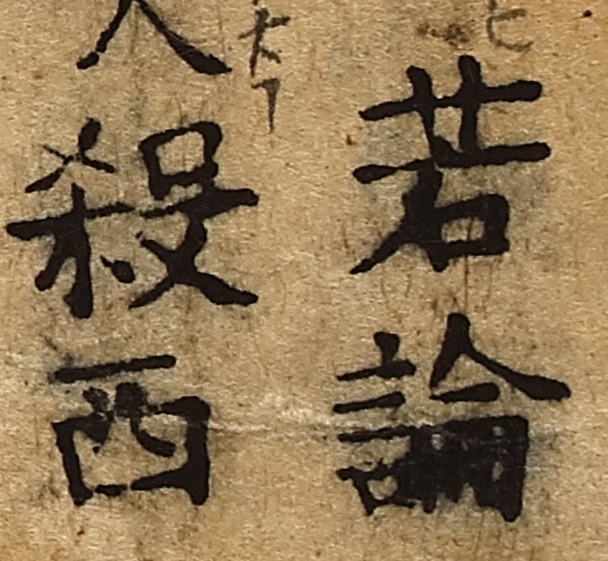 若論
人殺西